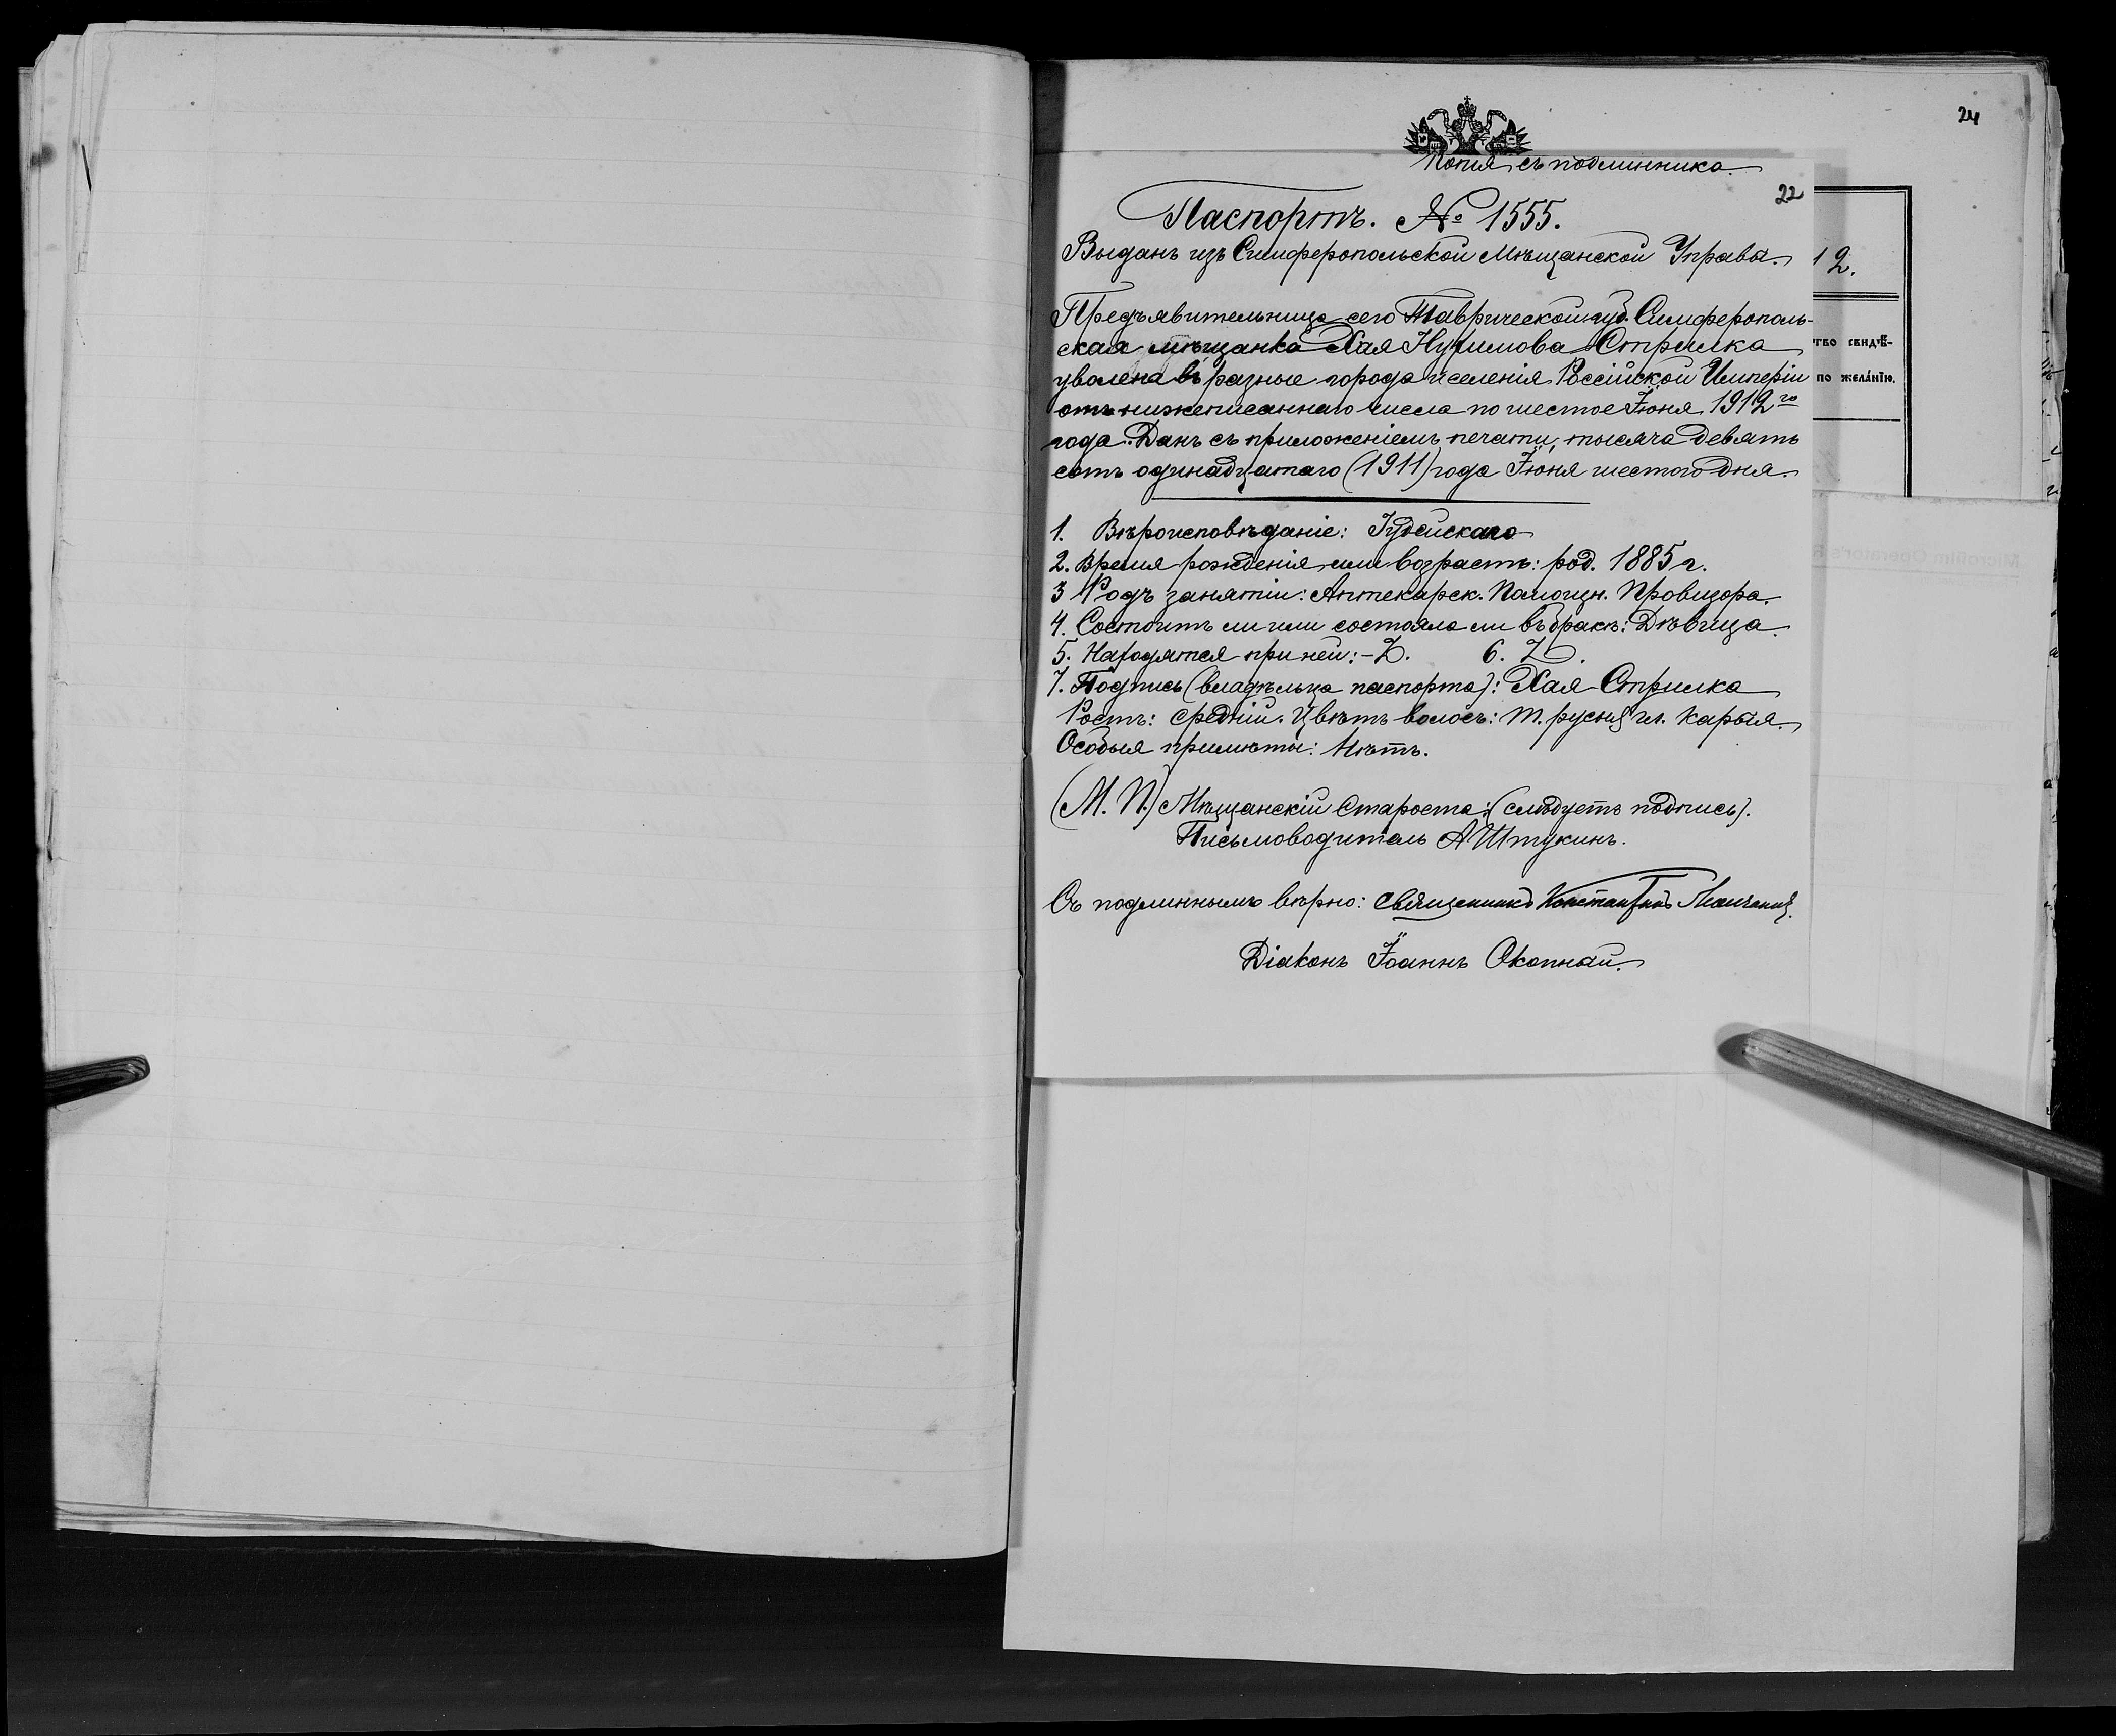 24
Копія съ подлинника.
22
Паспортъ. № 1555.
Выданъ изъ Симферопольской Мѣщанской Управы.
12.
Предъявительница сего Таврической губ. Симферополь-
ская мѣщанка Хая Нухимова Стрилка
уволена въ разные города и селенія Россійской Имперіи
отъ нижеписаннаго числа по шестое Іюня 1912го
года. Данъ съ приложеніемъ печати, тысяча девять
сотъ одинадцатаго (1911) года Іюня шестого дня.
СВИДѢ-
ПО ЖЕЛАНІЮ.
1. Вѣроисповѣданіе: Іудейскаго
2. Время рожденія или возрастъ: род. 1885 г.
3 Родъ занятій: Аптекарск. Помощн. Провизора.
4. Состоитъ ли или состояла ли въ бракѣ: Дѣвица.
5. Находятся при ней: - Z. 6. Z.
7. Подпись (владѣльца паспорта): Хая Стрилка
Ростъ: средній. Цвѣтъ волосъ: т. русыя гл. карыя.
Особыя примѣты: Нѣтъ.
(М. П.) Мѣщанскій Староста: (слѣдуетъ подпись).
Письмоводитель А Штукинъ.
Съ подлиннымъ вѣрно: Священникъ Константинъ
Діаконъ Іоаннъ Окопнай.